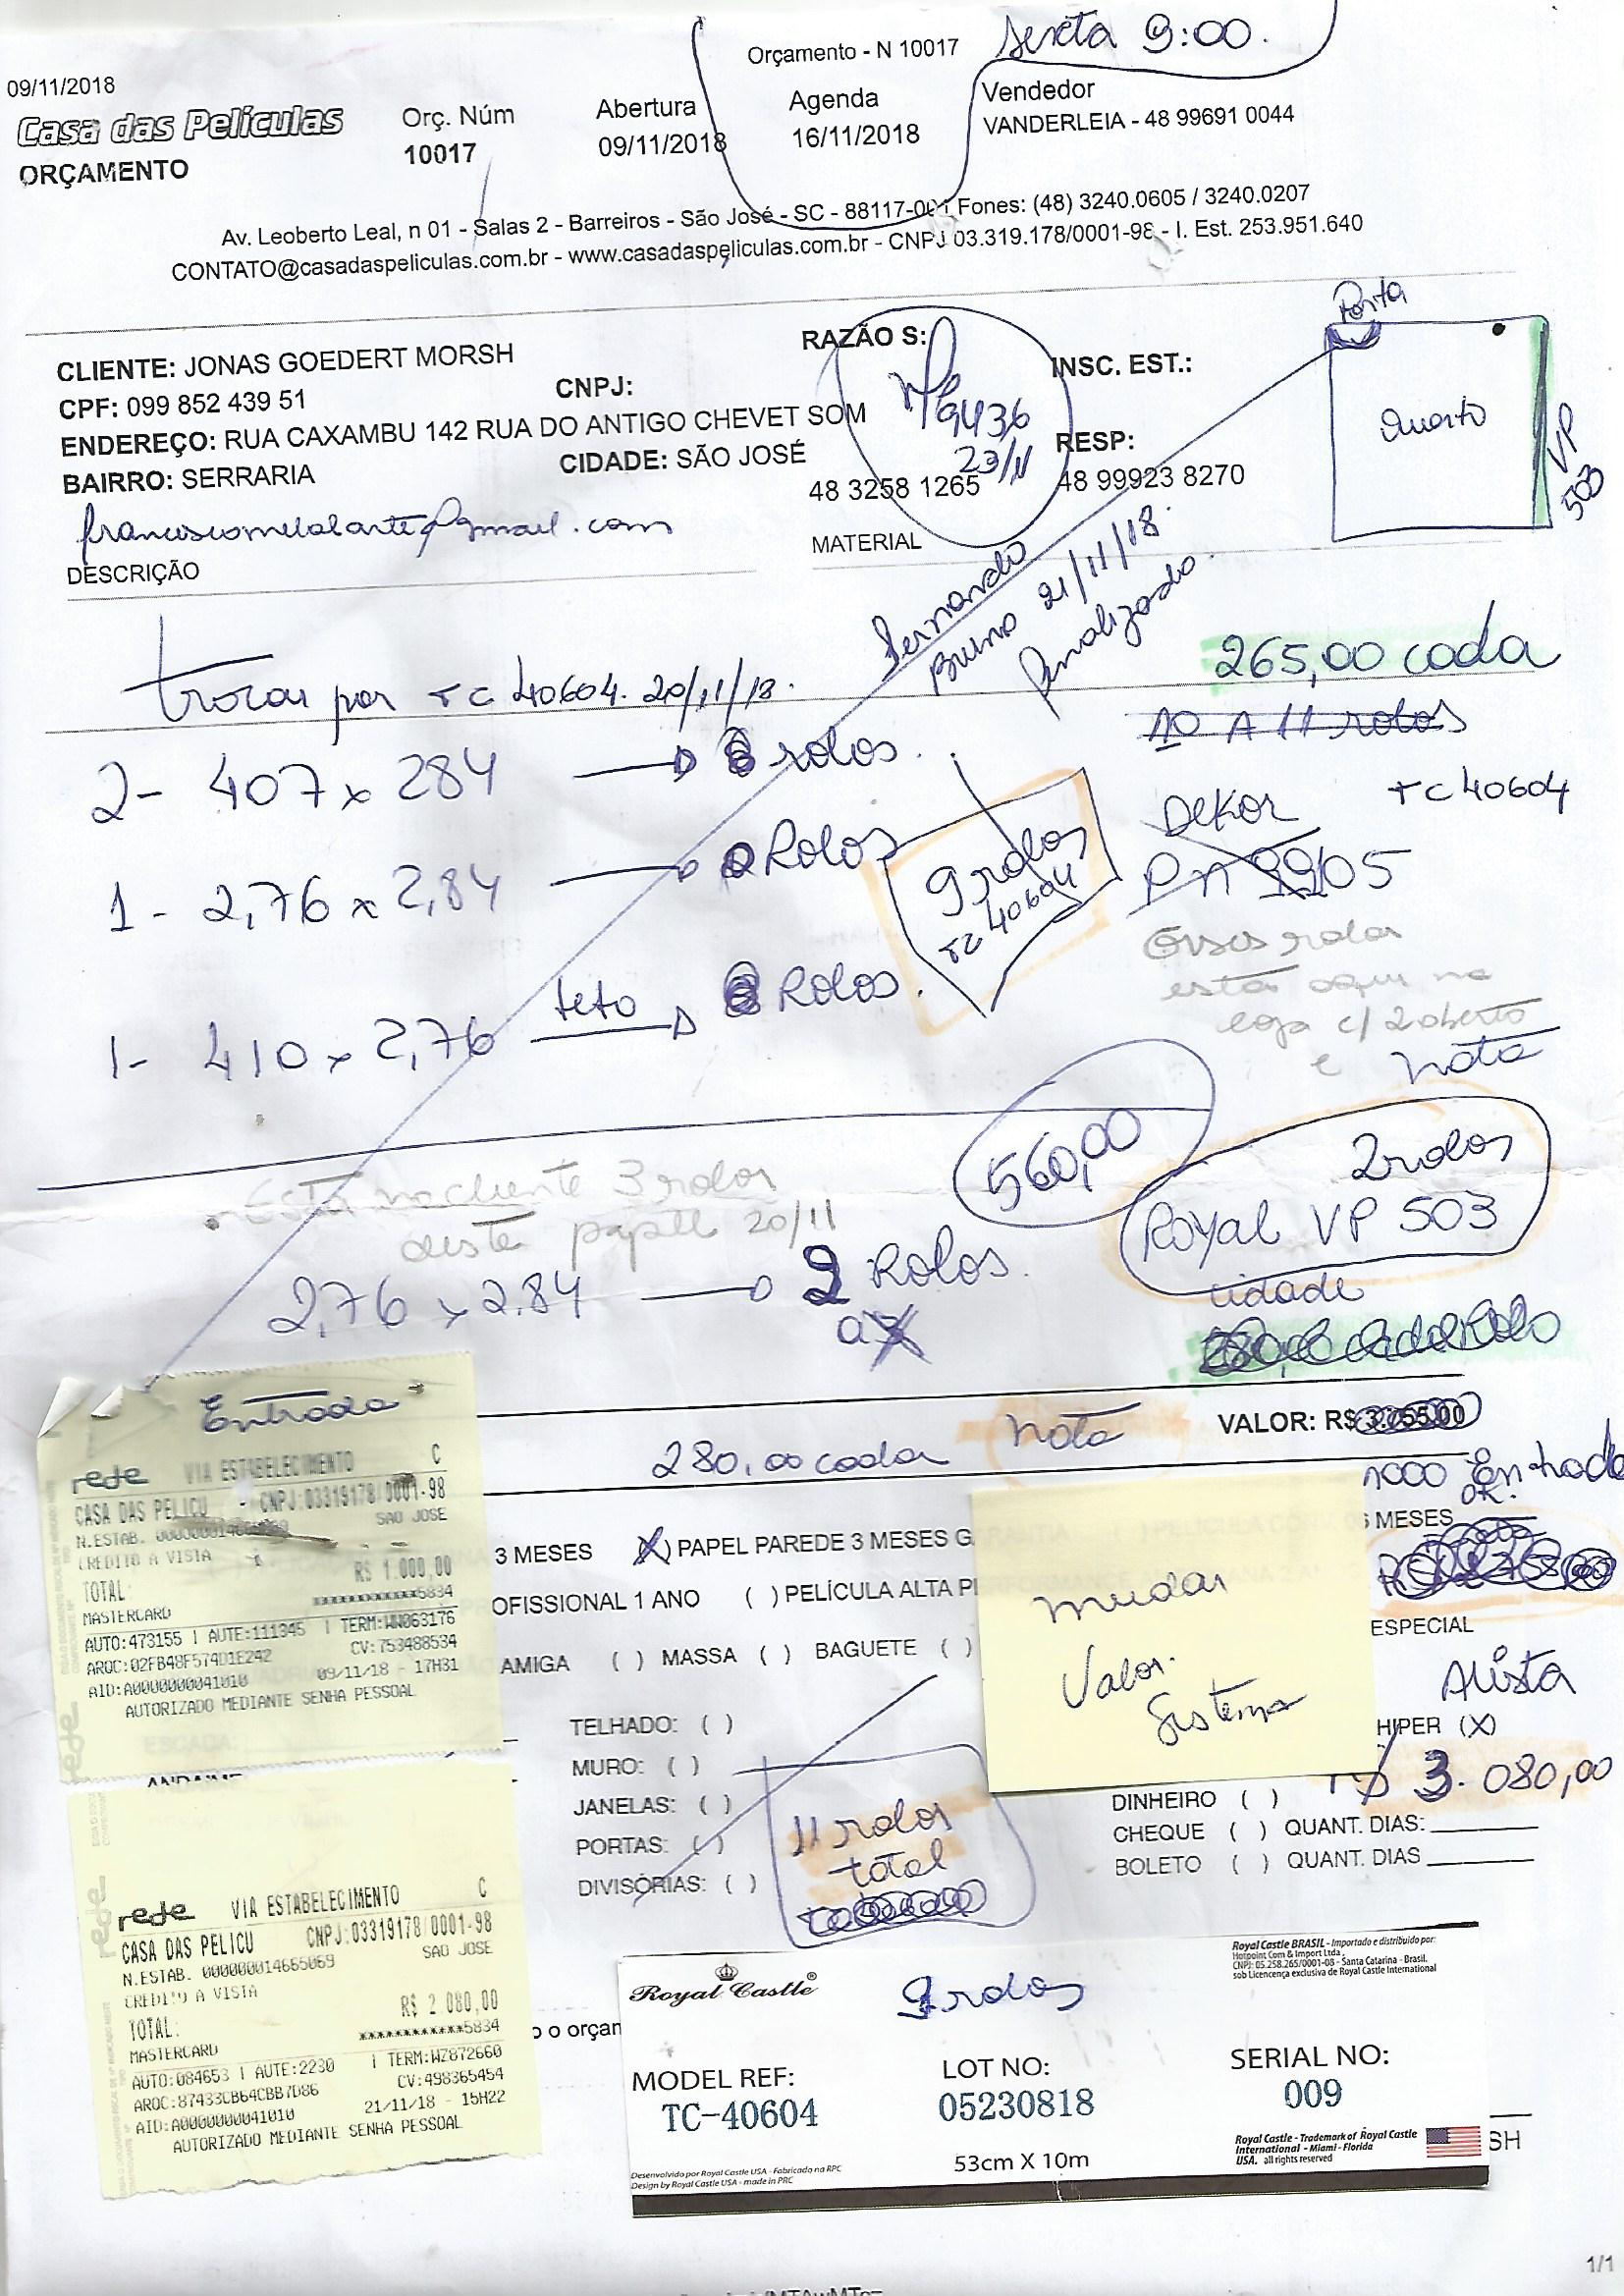 Orçamento - N 10017
sexta 9:00.
09/11/2018
Casa das Películas
ORÇAMENTO
Orç. Núm
10017
Abertura
09/11/2018
Agenda
16/11/2018
Vendedor
VANDERLEIA - 48 99691 0044
Av. Leoberto Leal, n 01 - Salas 2 - Barreiros - São José - SC - 88117-001 Fones: (48) 3240.0605 / 3240.0207
CONTATO@casadaspeliculas.com.br - www.casadaspeliculas.com.br - CNPJ 03.319.178/0001-98 - I. Est. 253.951.640
CLIENTE: JONAS GOEDERT MORSH
RAZÃO S:
CPF: 099 852 439 51
CNPJ:
INSC. EST.:
ENDEREÇO: RUA CAXAMBU 142 RUA DO ANTIGO CHEVET SOM
BAIRRO: SERRARIA
CIDADE: SÃO JOSÉ
RESP:
48 3258 1265
48 99923 8270
9436
23/11
Porta
Quarto
VP
503
DESCRIÇÃO
MATERIAL
Fernando
Bruno 21/11/18.
finalizado.
trocar por TC 40604. 20/11/18.
265,00 cada
10 A 11 rolos
2- 407 x 284
rolos.
DEKOR
TC 40604
1- 2,76 x 2,84
Rolos
9 rolos
TC 40604
Esses rolos
estão aqui na
loja c/ 2 aberto
e nota
1- 410 x 2,76
teto
Rolos.
560,00
2 rolos
Royal VP 503
cidade
Está no cliente 3 rolos
deste papel 20/11
2,76 x 2.84
2 Rolos.
280,00 cada
Nota
VALOR: R$
1000 Entrada
OK.
Entrada
rede VIA ESTABELECIMENTO C
CASA DAS PELICU - CNPJ:03319178/0001-98
N.ESTAB.
SAO JOSE
CREDITO A VISTA
TOTAL: R$ 1.000,00
MASTERCARD ************5834
AUTO:473155 | AUTE:111345 | TERM:WN063176
CV:753488534
ARQC:02FB48F574D1E242
AID:A0000000041010 09/11/18 - 17H31
AUTORIZADO MEDIANTE SENHA PESSOAL
3 MESES
(X) PAPEL PAREDE 3 MESES G
MESES
OFISSIONAL 1 ANO
( ) PELÍCULA ALTA P
ESPECIAL
AMIGA ( ) MASSA ( ) BAGUETE ( )
mudar
Valor.
Sistema
Avista
HIPER (X)
R$ 3.080,00
TELHADO: ( )
MURO: ( )
JANELAS: ( )
PORTAS: ( )
DIVISÓRIAS: ( )
11 rolos
total
DINHEIRO ( )
CHEQUE ( ) QUANT. DIAS:
BOLETO ( ) QUANT. DIAS
rede VIA ESTABELECIMENTO C
CASA DAS PELICU CNPJ:03319178/0001-98
N.ESTAB. 000000014665069 SAO JOSE
CREDITO A VISTA
TOTAL: R$ 2.080,00
MASTERCARD ************5834
AUTO:084653 | AUTE:2230 | TERM:WZ872660
ARQC:87433CB64CBB7D86 CV:498365454
AID:A0000000041010 21/11/18 - 15H22
AUTORIZADO MEDIANTE SENHA PESSOAL
o orçan
Royal Castle®
9 rolos
Royal Castle BRASIL - Importado e distribuido por:
Hotpoint Com & Import Ltda.
CNPJ: 05.258.265/0001-08 - Santa Catarina - Brasil.
sob Licencença exclusiva de Royal Castle International
MODEL REF:
TC-40604
LOT NO:
05230818
SERIAL NO:
009
53cm X 10m
Desenvolvido por Royal Castle USA - Fabricado na RPC
Design by Royal Castle USA - made in PRC
Royal Castle - Trademark of Royal Castle
International - Miami - Florida
USA. all rights reserved
SH
1/1